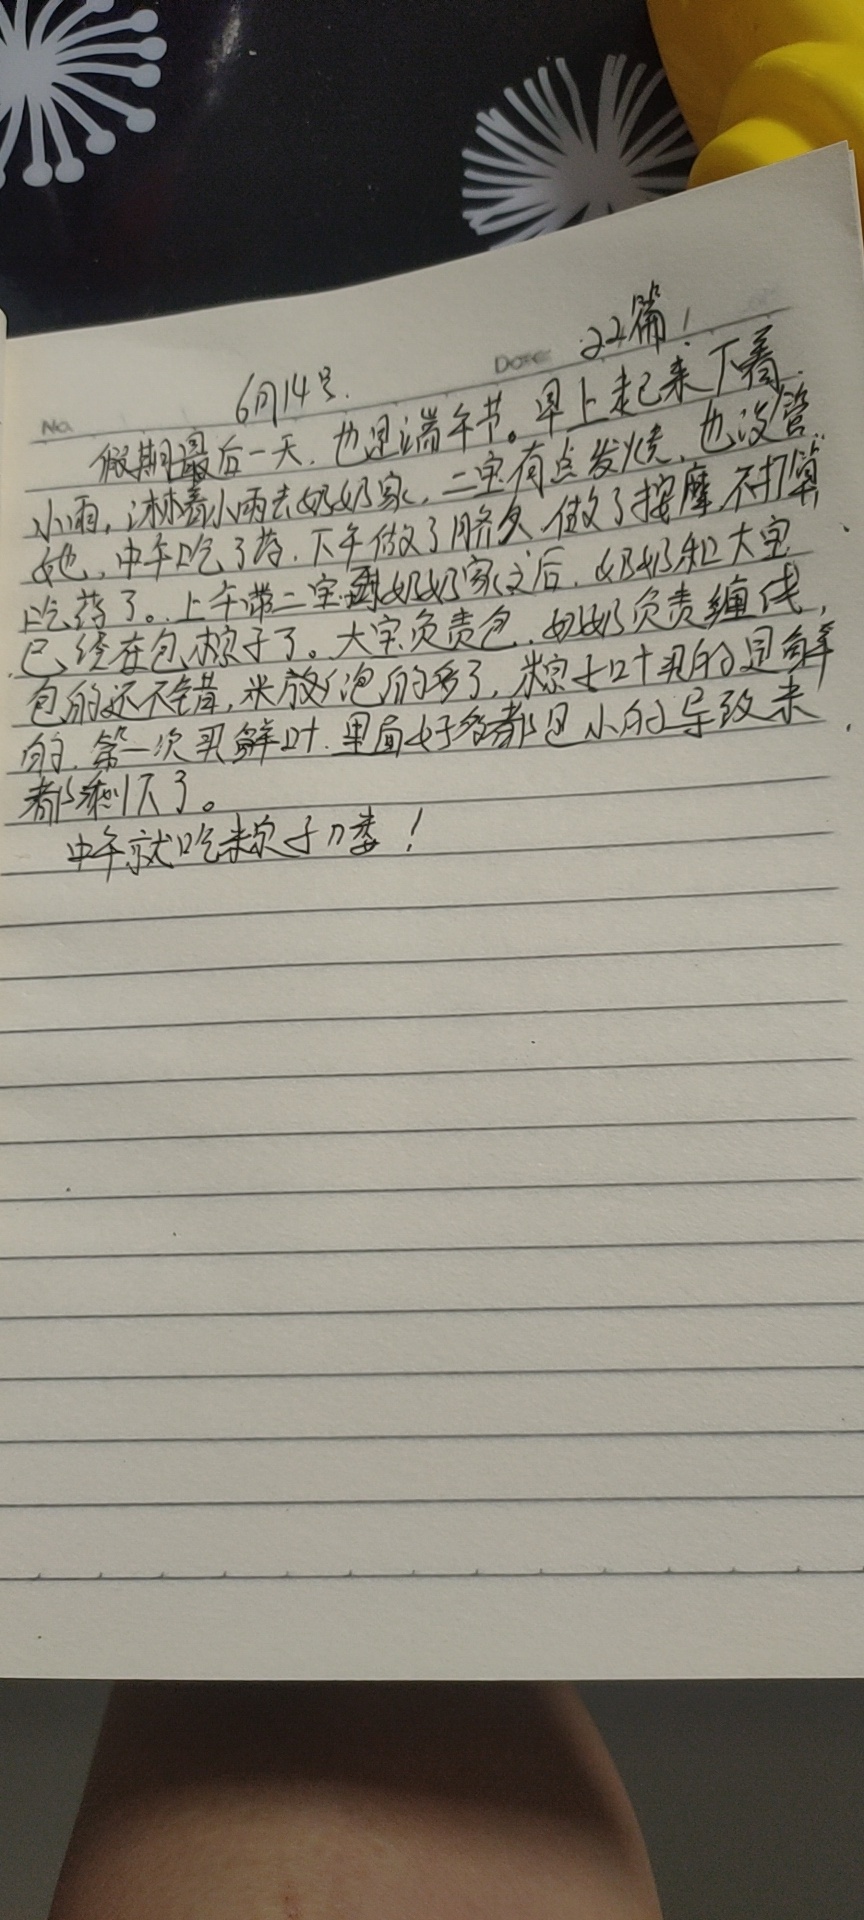 22篇!
No. 6月14号. Date
假期最后一天,也是端午节。早上起来下着
小雨,淋着小雨去奶奶家,二宝有点发烧,也没管
她,中午吃了药,下午做了脐灸,做了按摩,不打算
吃药了。上午带二宝到奶奶家之后,奶奶和大宝
已经在包粽子了。大宝负责包,奶奶负责缠线,
包的还不错,米放/泡的多了,粽子叶买的是鲜
的,第一次买鲜叶,里面好多都是小的导致米
都剩下了。
中午就吃粽子喽!